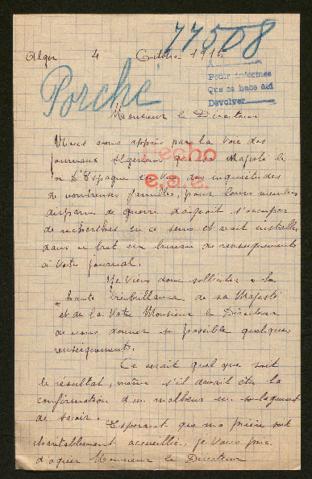 77508
Alger 4 Octobre 191
A
Para informes
Que se hace así
Devolver
Porché
Monsieur le Directeur
Nous avons appris par la voie des
journaux Algériens que sa Majesté le
Roi d'Espagne en vue des inquiétudes
de nombreuses familles, pour leurs membres
disparus de guerre daignait s'occuper
de recherches en ce sens et avait installés
dans ce but un bureau de renseignements
à Votre Journal.
hecho
e.a.e.
Je viens donc solliciter de la
haute bienveillance de sa Majesté
et de la Votre Monsieur le Directeur
de nous donner si possible quelques
renseignements.
Ce serait quel que soit
le résultat, même s'il devait être la
confirmation d'un malheur un soulagement
de savoir.
Espérant que ma prière sera
charitablement accueillie, je vous prie
d'agréer Monsieur le Directeur